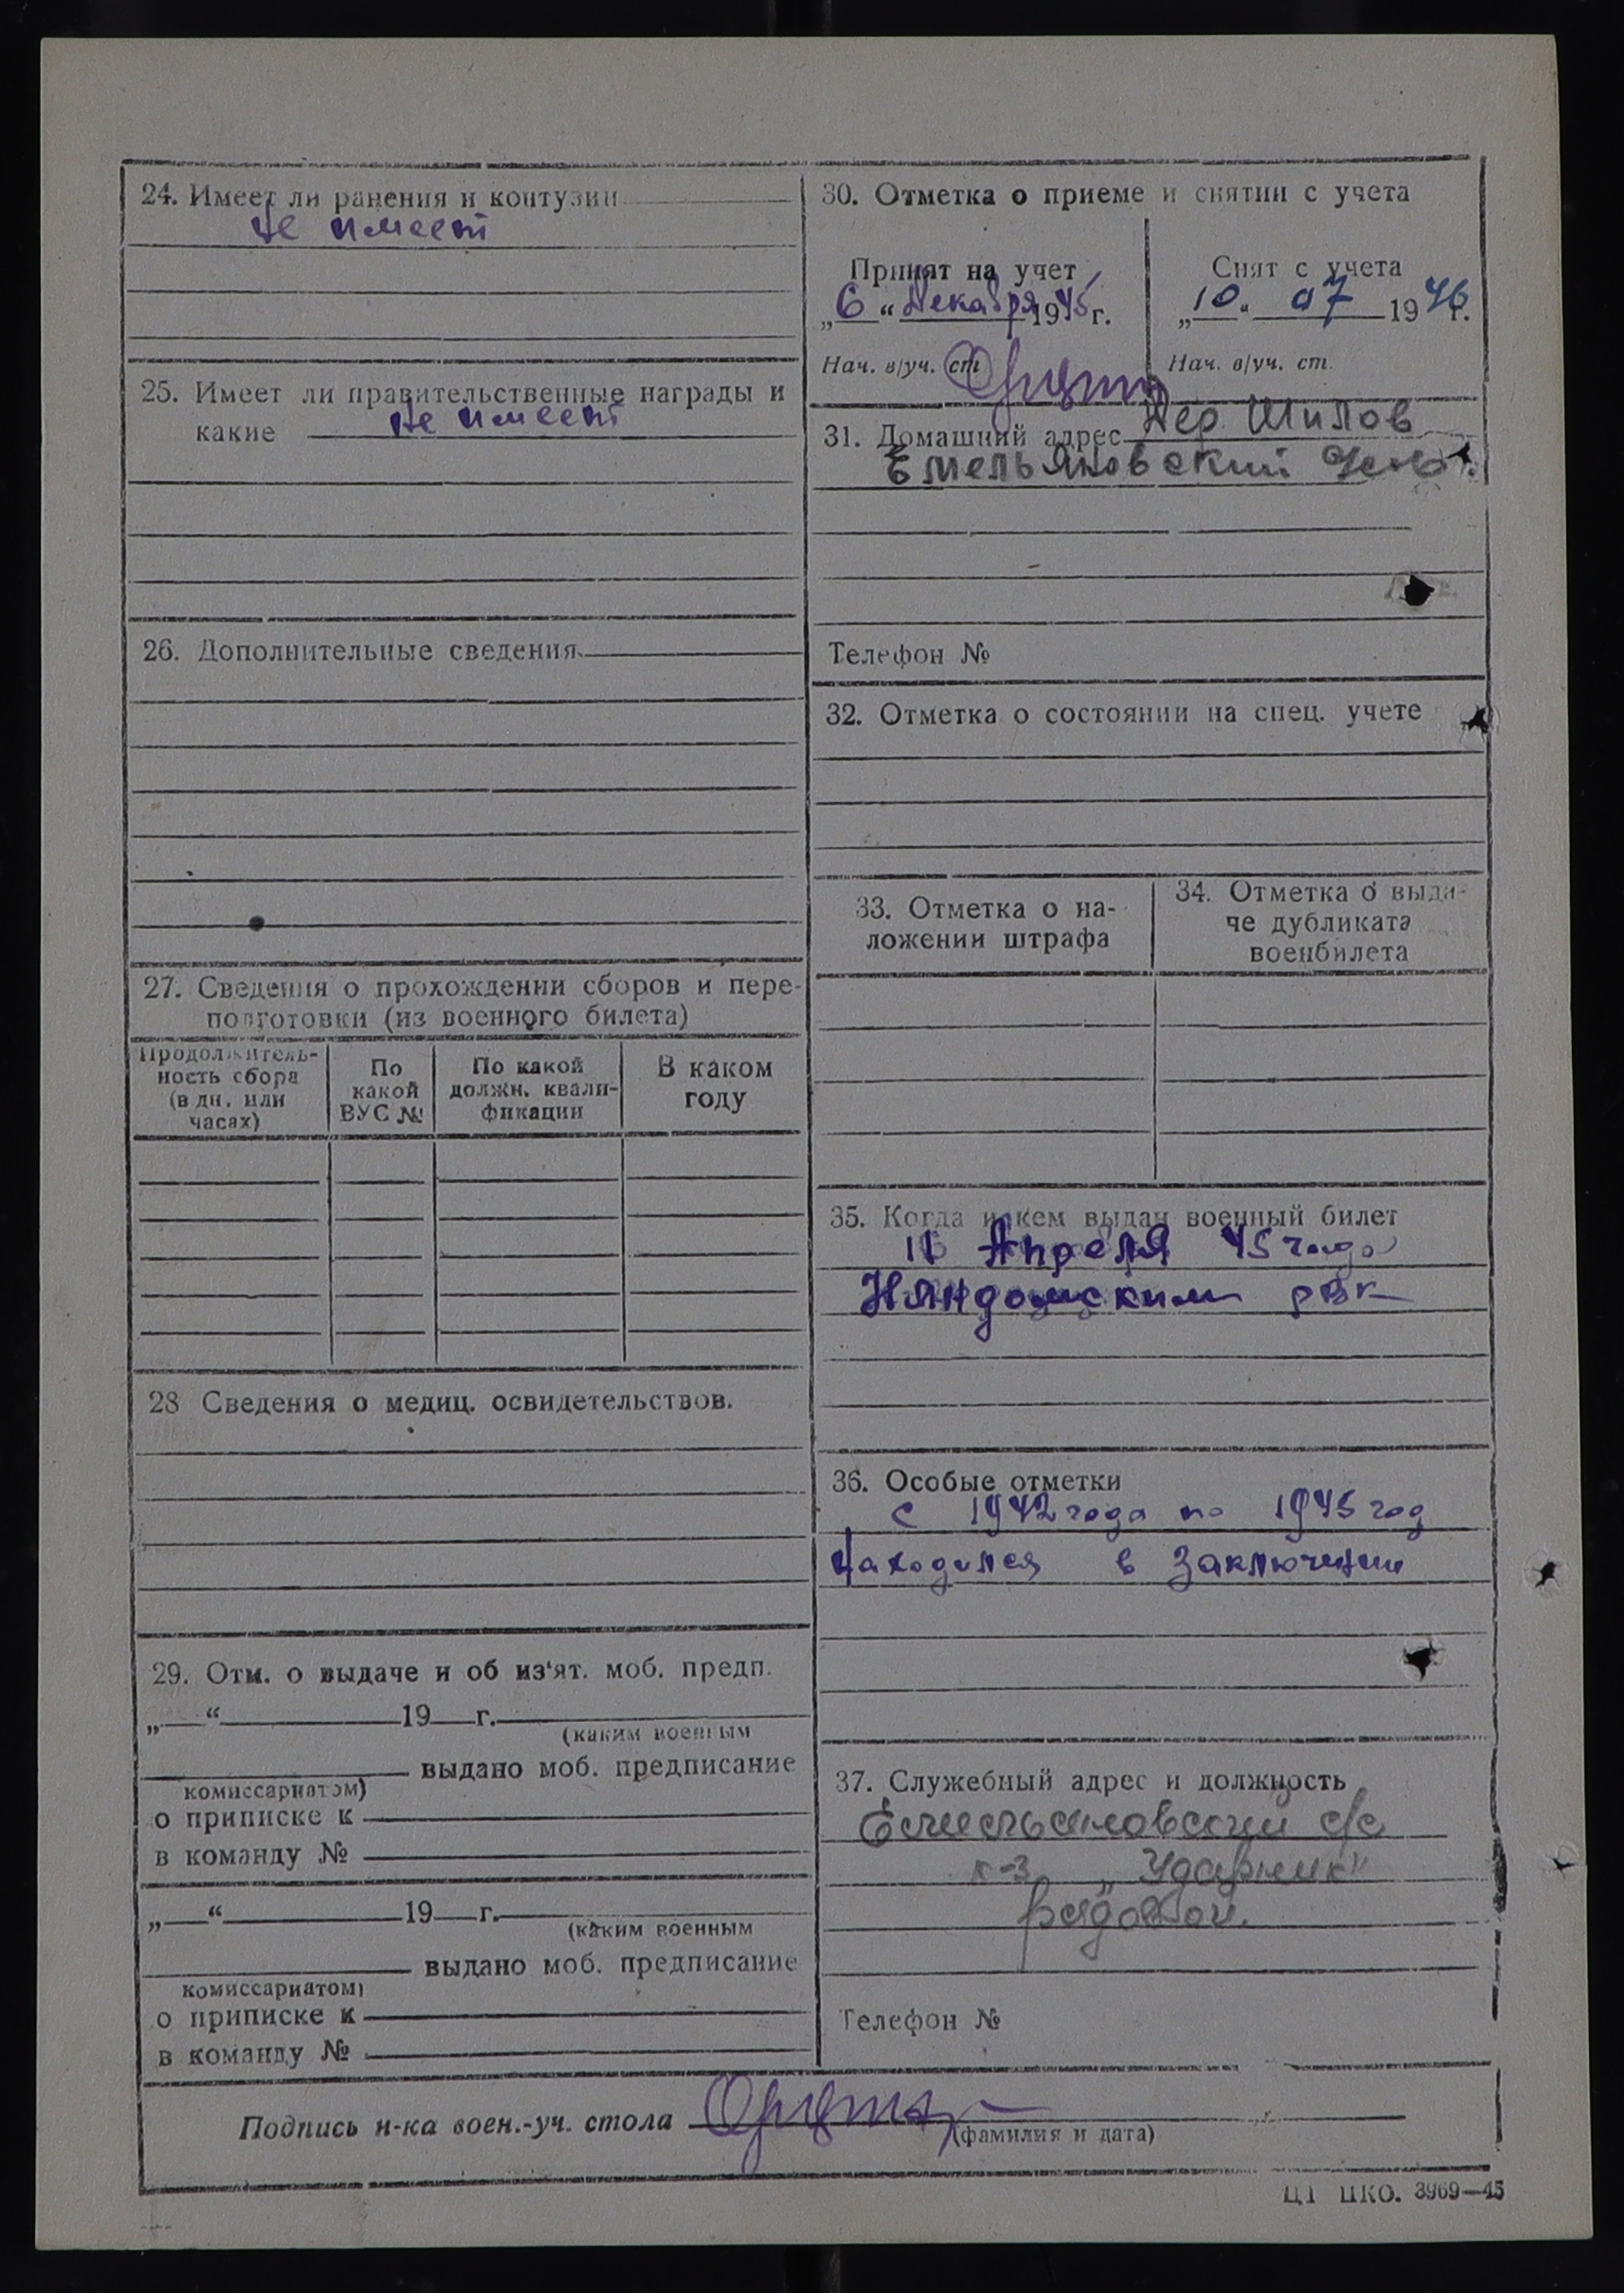 24. Имеет ли ранения и контузии
не имеет
25. Имеет ли правительственные награды и
какие не имеет
26. Дополнительные сведения
27. Сведения о прохождении сборов и пере-
подготовки (из военного билета)
Продолжитель-
ность сбора
(в дн. или
часах)
По
какой
ВУС №
По какой
должн. квали-
фикации
В каком
году
28 Сведения о медиц. освидетельствов.
29. Отм. о выдаче и об из'ят. моб. предп.
„ “ 19 г.
(каким военным
выдано моб. предписание
комиссариатом)
о приписке к
в команду №
„ “ 19 г.
(каким военным
выдано моб. предписание
комиссариатом)
о приписке к
в команду №
30. Отметка о приеме и снятии с учета
Принят на учет
„6“ Декабря 1945 г.
Нач. в/уч. ст
Снят с учета
„10“ 07 1946 г.
Нач. в/уч. ст.
31. Домашний адрес Дер Шилов
Емельяновский
Телефон №
32. Отметка о состоянии на спец. учете
33. Отметка о на-
ложении штрафа
34. Отметка о выда-
че дубликата
военбилета
35. Когда и кем выдан военный билет
Апреля 45 года
Няндомским рвк
36. Особые отметки
с 1942 года по 1945 год
Находился в заключении
37. Служебный адрес и должность
Емельяновский с/с
к-з „Ударник“
рядовой.
Телефон №
Подпись н-ка воен.-уч. стола
(фамилия и дата)
ЦТ ЦКО. 3969—45